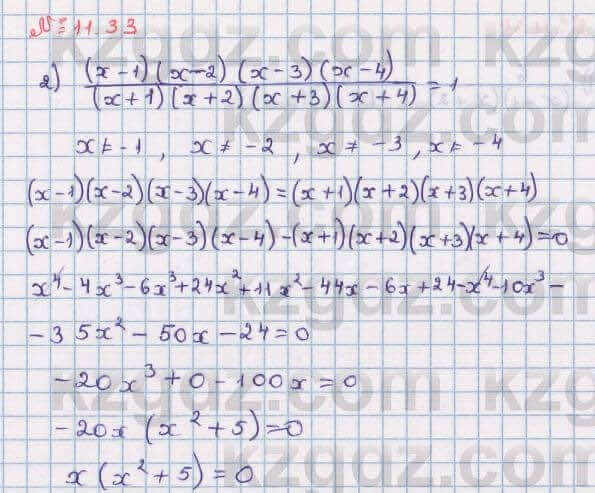 № 11.33
2) (x-1)(x-2)(x-3)(x-4)
(x+1)(x+2)(x+3)(x+4) = 1
x ≠ -1, x ≠ -2, x ≠ -3, x ≠ -4
(x-1)(x-2)(x-3)(x-4)=(x+1)(x+2)(x+3)(x+4)
(x-1)(x-2)(x-3)(x-4)-(x+1)(x+2)(x+3)(x+4)=0
x⁴-4x³-6x³+24x²+11x²-44x-6x+24-x⁴-10x³-
-35x²-50x-24=0
-20x³+0-100x=0
-20x(x²+5)=0
x(x²+5)=0
kzgdz.com